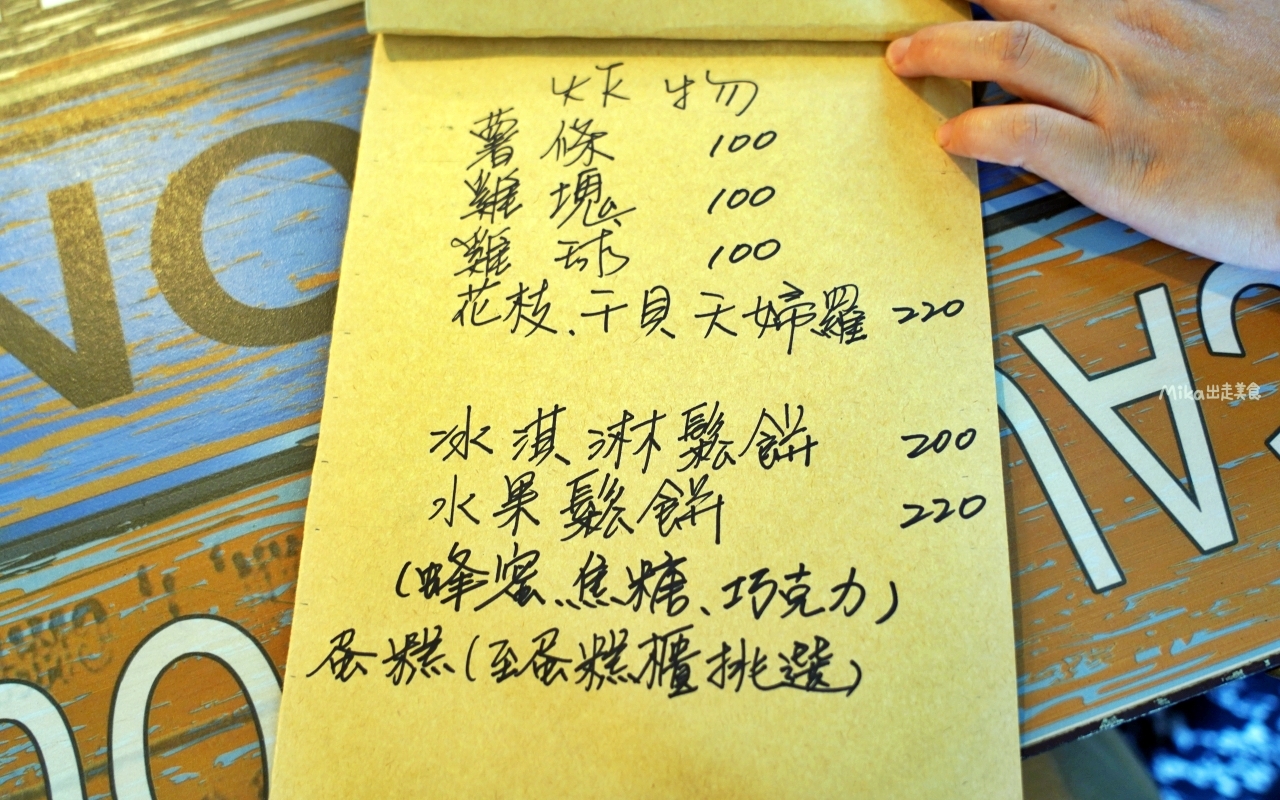 炸物
薯條 100
雞塊 100
雞球 100
花枝、干貝天婦羅 220
冰淇淋鬆餅 200
水果鬆餅 220
(蜂蜜、焦糖、巧克力)
蛋糕(至蛋糕櫃挑選)
Mika出走美食